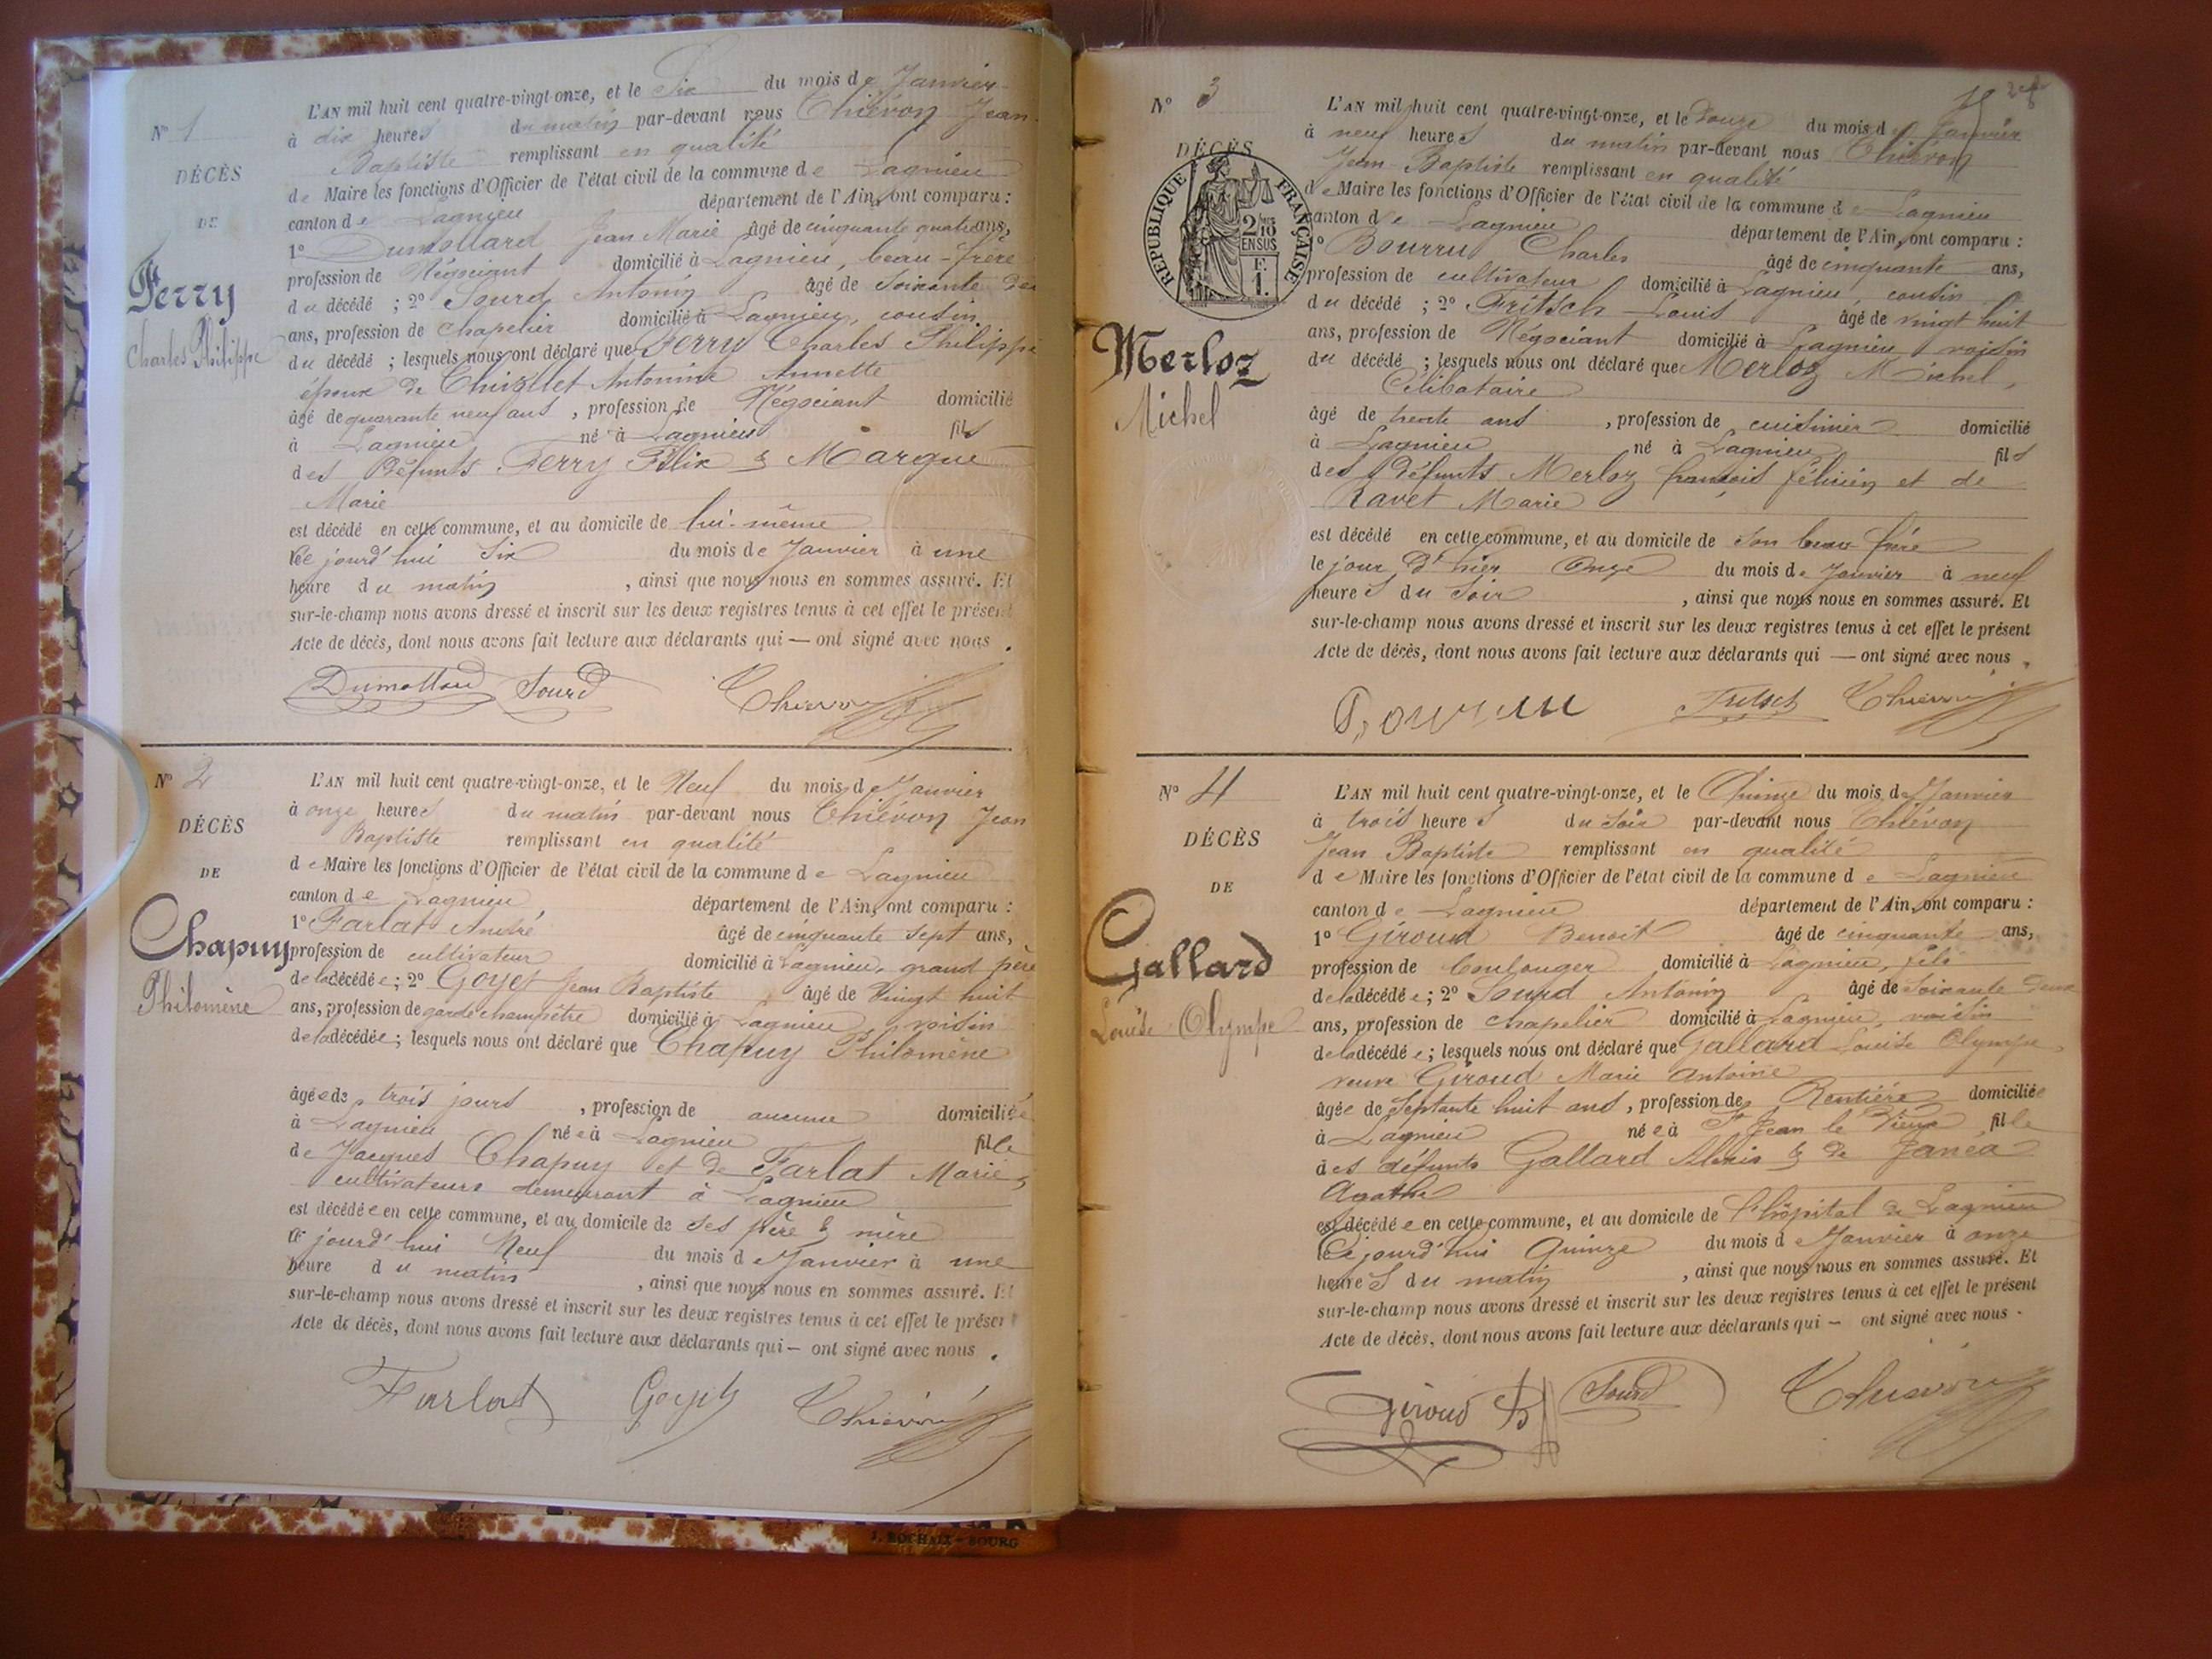 N° 1
DÉCÈS
DE
Ferry
Charles Philippe
L'AN mil huit cent quatre-vingt-onze, et le Six du mois de Janvier
à dix heures du matin par-devant nous Thiévon Jean
Baptiste remplissant en qualité
de Maire les fonctions d'Officier de l'état civil de la commune de Lagnieu
canton de Lagnieu département de l'Ain, ont comparu :
1° Dumollard Jean Marie âgé de cinquante quatre ans,
profession de Négociant domicilié à Lagnieu, beau-frère
du décédé ; 2° Sourd Antonin âgé de Soixante deux
ans, profession de chapelier domicilié à Lagnieu, cousin
du décédé ; lesquels nous ont déclaré que Ferry Charles Philippe
époux de Antonine Annette
âgé de quarante neuf ans , profession de Négociant domicilié
à Lagnieu né à Lagnieu fils
des Défunts Ferry Félix & Margue
Marie
est décédé en cette commune, et au domicile de lui-même
Ce jourd'hui Six du mois de Janvier à une
heure du matin , ainsi que nous nous en sommes assuré. Et
sur-le-champ nous avons dressé et inscrit sur les deux registres tenus à cet effet le présent
Acte de décès, dont nous avons fait lecture aux déclarants qui — ont signé avec nous .
Dumollard Sourd Thiévon
N° 2
DÉCÈS
DE
Chapuy
Philomène
L'AN mil huit cent quatre-vingt-onze, et le Neuf du mois de Janvier
à onze heures du matin par-devant nous Thiévon Jean
Baptiste remplissant en qualité
de Maire les fonctions d'Officier de l'état civil de la commune de Lagnieu
canton de Lagnieu département de l'Ain, ont comparu :
1° Farlat André âgé de cinquante sept ans,
profession de cultivateur domicilié à Lagnieu, grand père
de la décédée ; 2° Goyet Jean Baptiste âgé de Vingt huit
ans, profession de garde champêtre domicilié à Lagnieu voisin
de la décédée ; lesquels nous ont déclaré que Chapuy Philomène
âgée de trois jours , profession de aucune domiciliée
à Lagnieu née à Lagnieu fille
de Jacques Chapuy et de Farlat Marie,
cultivateurs demeurant à Lagnieu
est décédée en cette commune, et au domicile de ses père & mère
Ce jourd'hui Neuf du mois de Janvier à une
heure du matin , ainsi que nous nous en sommes assuré. Et
sur-le-champ nous avons dressé et inscrit sur les deux registres tenus à cet effet le présent
Acte de décès, dont nous avons fait lecture aux déclarants qui — ont signé avec nous .
Farlat Goyet Thiévon
J. ROCHAIX - BOURG
N° 3
DÉCÈS
RÉPUBLIQUE FRANÇAISE
2/10 EN SUS
F. 1.
Merloz
Michel
L'AN mil huit cent quatre-vingt-onze, et le Douze du mois de Janvier
à neuf heures du matin par-devant nous Thiévon
Jean-Baptiste remplissant en qualité
de Maire les fonctions d'Officier de l'état civil de la commune de Lagnieu
canton de Lagnieu département de l'Ain, ont comparu :
1° Bourru Charles âgé de cinquante ans,
profession de cultivateur domicilié à Lagnieu, cousin
du décédé ; 2° Fritsch Louis âgé de vingt huit
ans, profession de Négociant domicilié à Lagnieu voisin
du décédé ; lesquels nous ont déclaré que Merloz Michel,
Célibataire
âgé de trente ans , profession de cuisinier domicilié
à Lagnieu né à Lagnieu fils
des défunts Merloz françois félicien et de
Ravet Marie
est décédé en cette commune, et au domicile de son beau frère
le jour d'hier Onze du mois de Janvier à neuf
heures du Soir , ainsi que nous nous en sommes assuré. Et
sur-le-champ nous avons dressé et inscrit sur les deux registres tenus à cet effet le présent
Acte de décès, dont nous avons fait lecture aux déclarants qui — ont signé avec nous .
Bourru Fritsch Thiévon
N° 4
DÉCÈS
DE
Gallard
Louise Olympe
L'AN mil huit cent quatre-vingt-onze, et le Quinze du mois de Janvier
à trois heures du Soir par-devant nous Thiévon
Jean Baptiste remplissant en qualité
de Maire les fonctions d'Officier de l'état civil de la commune de Lagnieu
canton de Lagnieu département de l'Ain, ont comparu :
1° Giroud Benoit âgé de cinquante ans,
profession de boulanger domicilié à Lagnieu, fils
de la décédée ; 2° Sourd Antonin âgé de Soixante Deux
ans, profession de chapelier domicilié à Lagnieu, voisin
de la décédée ; lesquels nous ont déclaré que Gallard Louise Olympe,
veuve Giroud Marie Antoine
âgée de Septante huit ans , profession de Rentière domiciliée
à Lagnieu née à St Jean le Vieux fille
des défunts Gallard Alexis & de Janéa
Agathe
est décédée en cette commune, et au domicile de l'hôpital de Lagnieu
Ce jourd'hui Quinze du mois de Janvier à onze
heures du matin , ainsi que nous nous en sommes assuré. Et
sur-le-champ nous avons dressé et inscrit sur les deux registres tenus à cet effet le présent
Acte de décès, dont nous avons fait lecture aux déclarants qui — ont signé avec nous .
Giroud B Sourd Thiévon